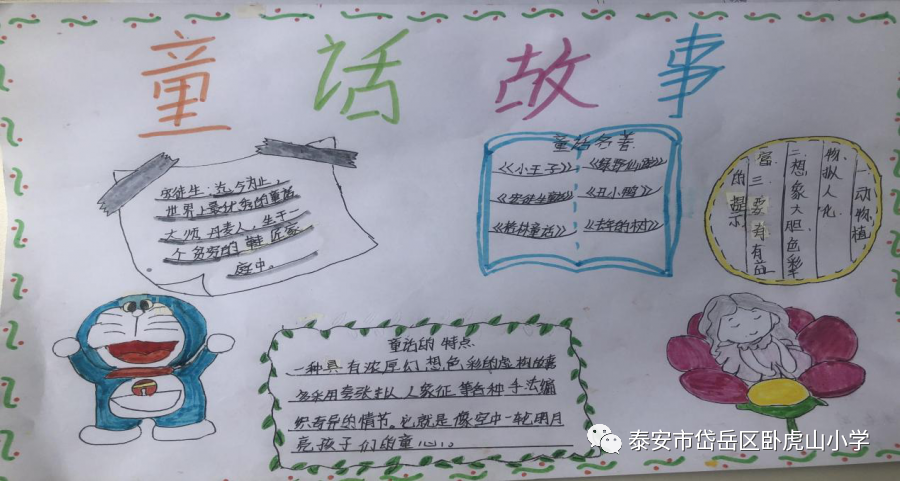 童话故事
安徒生：迄今为止，
世界上最优秀的童话
大师，丹麦人，生于一
个贫穷的鞋匠家
庭中。
童话名著
《小王子》 《绿野仙踪》
《安徒生童话》 《丑小鸭》
《格林童话》 《去年的树》
一、动物植
物拟人化
二、想象大胆色彩
富 三、要有有益
的提示
童话的特点
一种具有浓厚幻想色彩的虚构故事
多采用夸张拟人象征等各种手法编
织奇异的情节。它就是像空中一轮明月
亮孩子们的童心。
泰安市岱岳区卧虎山小学